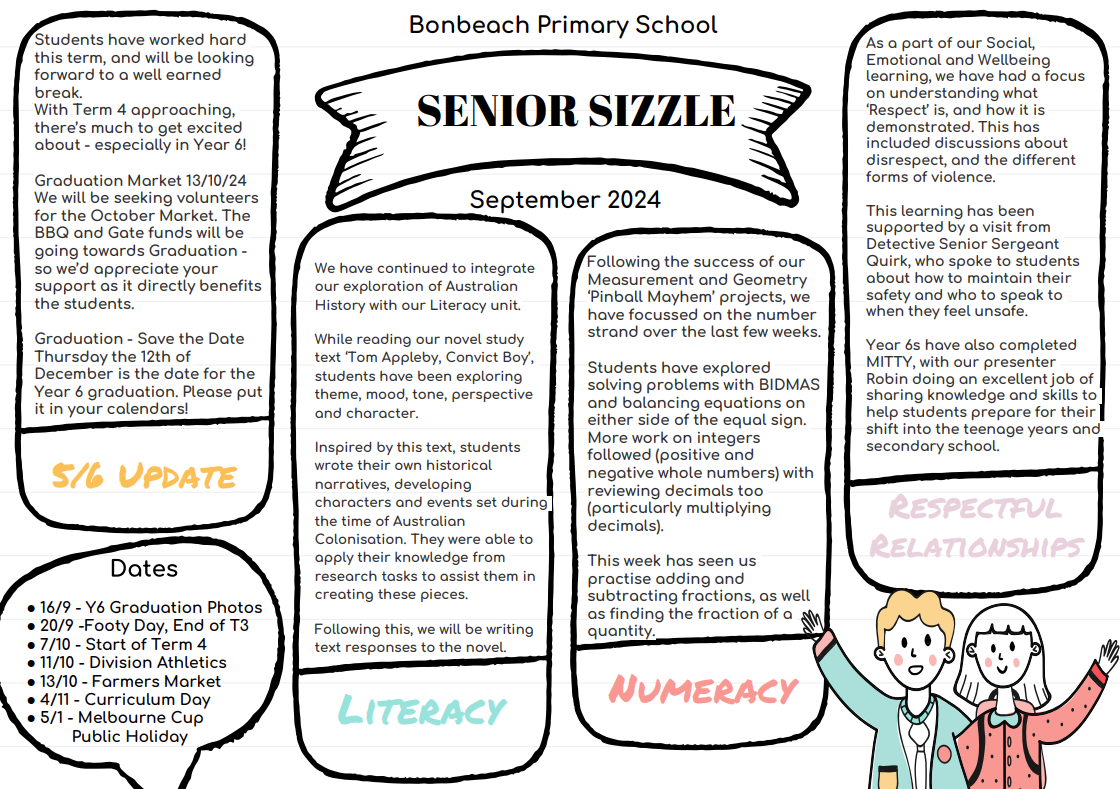 Bonbeach Primary School
SENIOR SIZZLE
September 2024
Students have worked hard
this term, and will be looking
forward to a well earned
break.
With Term 4 approaching,
there's much to get excited
about - especially in Year 6!
Graduation Market 13/10/24
We will be seeking volunteers
for the October Market. The
BBQ and Gate funds will be
going towards Graduation -
so we'd appreciate your
support as it directly benefits
the students.
Graduation - Save the Date
Thursday the 12th of
December is the date for the
Year 6 graduation. Please put
it in your calendars!
5/6 UPDATE
Dates
• 16/9 - Y6 Graduation Photos
• 20/9 -Footy Day, End of T3
• 7/10 - Start of Term 4
• 11/10 - Division Athletics
• 13/10 - Farmers Market
• 4/11 - Curriculum Day
• 5/1 - Melbourne Cup
Public Holiday
We have continued to integrate
our exploration of Australian
History with our Literacy unit.
While reading our novel study
text 'Tom Appleby, Convict Boy',
students have been exploring
theme, mood, tone, perspective
and character.
Inspired by this text, students
wrote their own historical
narratives, developing
characters and events set during
the time of Australian
Colonisation. They were able to
apply their knowledge from
research tasks to assist them in
creating these pieces.
Following this, we will be writing
text responses to the novel.
LITERACY
Following the success of our
Measurement and Geometry
'Pinball Mayhem' projects, we
have focussed on the number
strand over the last few weeks.
Students have explored
solving problems with BIDMAS
and balancing equations on
either side of the equal sign.
More work on integers
followed (positive and
negative whole numbers) with
reviewing decimals too
(particularly multiplying
decimals).
This week has seen us
practise adding and
subtracting fractions, as well
as finding the fraction of a
quantity.
NUMERACY
As a part of our Social,
Emotional and Wellbeing
learning, we have had a focus
on understanding what
'Respect' is, and how it is
demonstrated. This has
included discussions about
disrespect, and the different
forms of violence.
This learning has been
supported by a visit from
Detective Senior Sergeant
Quirk, who spoke to students
about how to maintain their
safety and who to speak to
when they feel unsafe.
Year 6s have also completed
MITTY, with our presenter
Robin doing an excellent job of
sharing knowledge and skills to
help students prepare for their
shift into the teenage years and
secondary school.
RESPECTFUL
RELATIONSHIPS